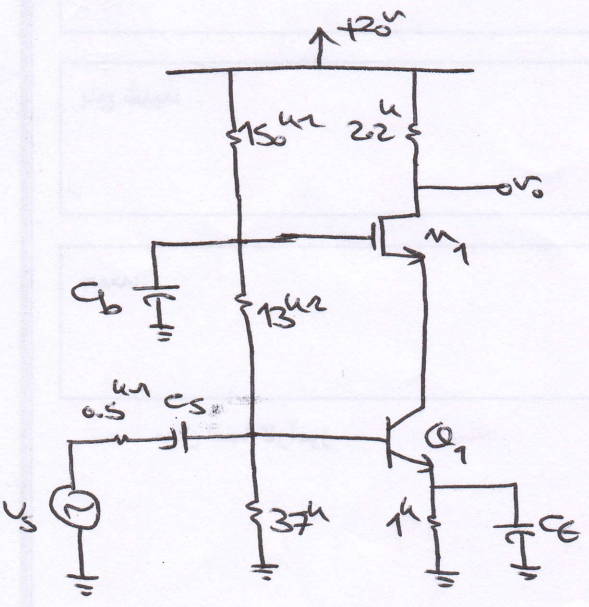 +20v
150kΩ
2.2k
vo
M1
Cb
13kΩ
0.5kΩ
Cs
Q1
Vs
37k
1k
CE